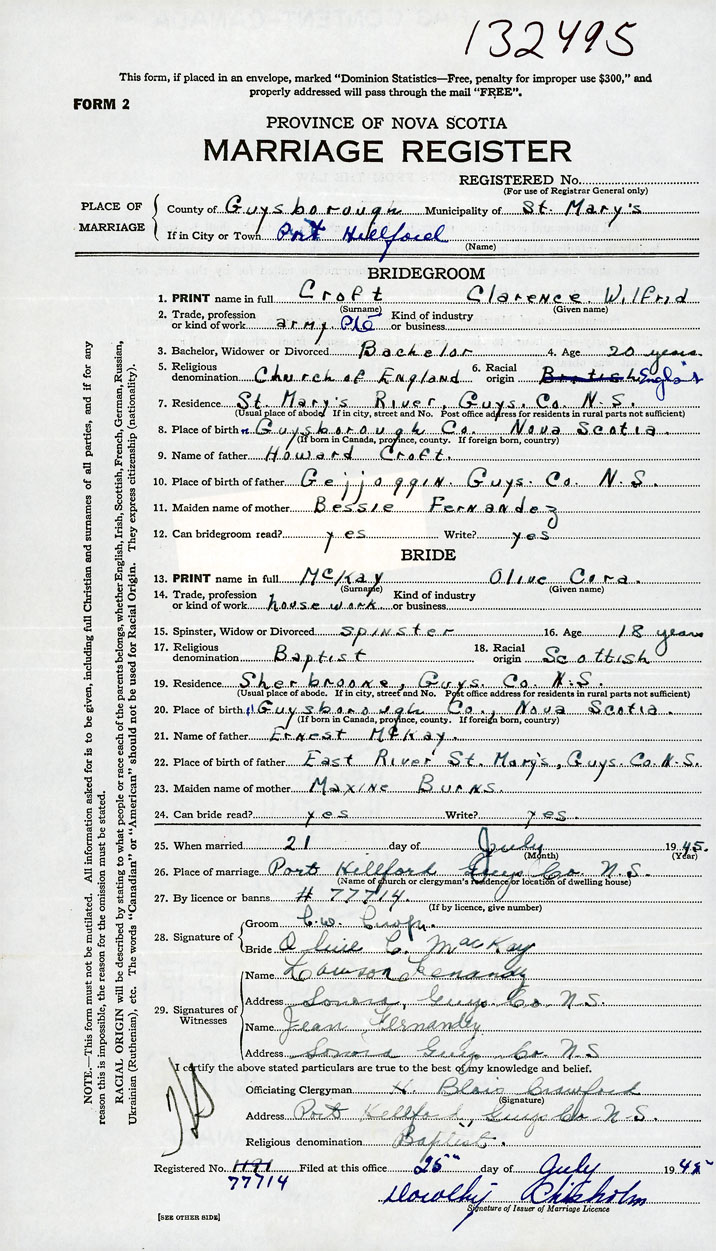 132495
This form, if placed in an envelope, marked "Dominion Statistics—Free, penalty for improper use $300," and
properly addressed will pass through the mail "FREE".
FORM 2
PROVINCE OF NOVA SCOTIA
MARRIAGE REGISTER
REGISTERED No.
(For use of Registrar General only)
PLACE OF MARRIAGE
County of Guysborough Municipality of St. Mary's
If in City or Town Port Hillford
(Name)
BRIDEGROOM
1. PRINT name in full Croft Clarence Wilfrid
(Surname) (Given name)
2. Trade, profession or kind of work army Pte Kind of industry or business
3. Bachelor, Widower or Divorced Bachelor 4. Age 20 years
5. Religious denomination Church of England 6. Racial origin British English
7. Residence St. Mary's River, Guys. Co. N.S.
(Usual place of abode. If in city, street and No. Post office address for residents in rural parts not sufficient)
8. Place of birth Guysborough Co. Nova Scotia.
(If born in Canada, province, county. If foreign born, country)
9. Name of father Howard Croft.
10. Place of birth of father Gejjoggin. Guys. Co. N.S.
11. Maiden name of mother Bessie Fernandez
12. Can bridegroom read? yes Write? yes
BRIDE
13. PRINT name in full McKay Olive Cora.
(Surname) (Given name)
14. Trade, profession or kind of work housework Kind of industry or business
15. Spinster, Widow or Divorced Spinster 16. Age 18 years
17. Religious denomination Baptist 18. Racial origin Scottish
19. Residence Sherbrooke, Guys. Co. N.S.
(Usual place of abode. If in city, street and No. Post office address for residents in rural parts not sufficient)
20. Place of birth Guysborough Co., Nova Scotia.
(If born in Canada, province, county. If foreign born, country)
21. Name of father Ernest McKay.
22. Place of birth of father East River St. Mary's, Guys. Co. N.S.
23. Maiden name of mother Maxine Burns.
24. Can bride read? yes Write? yes.
25. When married 21 day of July 1945
(Month) (Year)
26. Place of marriage Port Hillford Guys Co. N.S.
(Name of church or clergyman's residence or location of dwelling house)
27. By licence or banns # 77714.
(If by licence, give number)
28. Signature of
Groom C.W. Croft.
Bride Olive C. MacKay
29. Signatures of Witnesses
Name Lawson
Address Sonora, Guys. Co. N.S.
Name Jean Fernandez
Address Sonora Guys Co. N.S
I certify the above stated particulars are true to the best of my knowledge and belief.
Officiating Clergyman H. Blair Crawford
(Signature)
Address Port Hillford, Guys Co N.S.
Religious denomination Baptist.
Registered No. 1191 Filed at this office 25 day of July 1945
77714
Dorothy Chisholm
Signature of Issuer of Marriage Licence
[SEE OTHER SIDE]
NOTE.—This form must not be mutilated. All information asked for is to be given, including full Christian and surnames of all parties, and if for any
reason this is impossible, the reason for the omission must be stated.
RACIAL ORIGIN will be described by stating to what people or race each of the parents belongs, whether English, Irish, Scottish, French, German, Russian,
Ukrainian (Ruthenian), etc. The words "Canadian" or "American" should not be used for Racial Origin. They express citizenship (nationality).